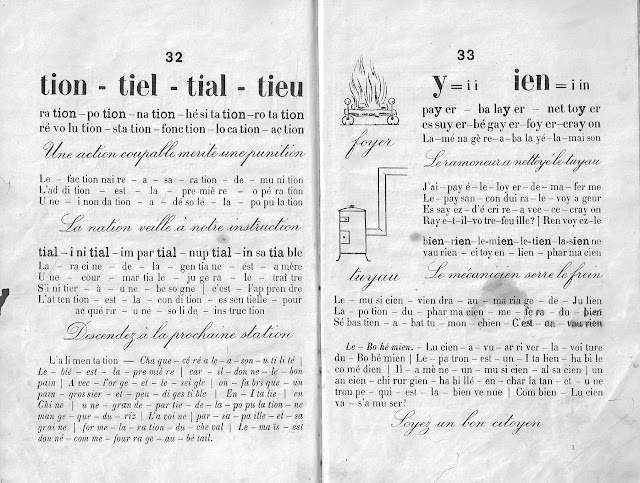 32
tion - tiel - tial - tieu
ra tion – po tion – na tion – hé si ta tion – ro ta tion
ré vo lu tion – sta tion – fonc tion – lo ca tion – ac tion
Une action coupable mérite une punition
Le – fac tion nai re – a – sa – ra tion – de – mu ni tion
L'ad di tion – est – la – pre miè re – o pé ra tion
U ne – i non da tion – a – dé so lé – la – po pu la tion
La nation veille à notre instruction
tial – i ni tial – im par tial – nup tial – in sa tia ble
La – ra ci ne – de – la – gen tia ne – est – a mère
U ne – cour – mar tia le – ju ge ra – le – traî tre
S'i ni tier – à – u ne – be so gne | c'est – l'ap pren dre
L'at ten tion – est – la – con di tion – es sen tielle – pour
ac qué rir – u ne – so li de – ins truc tion
Descendez à la prochaine station
L'a li men ta tion — Cha que – cé ré a le – a – son – u ti li té |
Le – blé – est – la – pre miè re | car – il – don ne – le – bon
pain | A vec – l'or ge – et – le – sei gle | on – fa bri que – un
pain – gros sier – et – peu – di ges ti ble | En – I ta lie | en
Chi ne | u ne – gran de – par tie – de – la – po pu la tion – ne
man ge – que – du – riz | L'a voi ne | par – sa – pail le – et – sa
grai ne | for me – la – ra tion – du – che val | Le – ma ïs – est
don né – com me – four ra ge – au – bé tail.
33
y = i i ien = i in
pay er – ba lay er – net toy er
es suy er – bé gay er – foy er – cray on
La – mé na gè re – a – ba la yé – la – mai son
foyer
Le ramoneur a nettoyé le tuyau
J'ai – pay é – le – loy er – de – ma – fer me
Le – pay san – con dui ra – le – voy a geur
Es say ez – d'é cri re – a vec – ce – cray on
Ray e – t – il – vo tre – feu ille ? | Ren voy ez – le
bien – rien – le – mien – le – tien – la – sien ne
vau rien – ci toy en – lien – phar ma cien
tuyau
Le mécanicien serre le frein
Le – mu si cien – vien dra – au – ma ria ge – de – Ju lien
La – po tion – du – phar ma cien – me – fe ra – du – bien
Sé bas tien – a – bat tu – mon – chien – C'est – un – vau rien
Le – Bo hé mien. – Lu cien – a – vu – ar ri ver – la – voi ture
du – Bo hé mien | Le – pa tron – est – un – I ta lien – ha bi le
co mé dien | Il – a mè ne – un – mu si cien – al sa cien | un
an cien – chi rur gien – ha bil lé – en – char la tan – et – u ne
trou pe – qui – est – la – bien ve nue | Com bien – Lu cien
va – s'a mu ser !
Soyez un bon citoyen
3